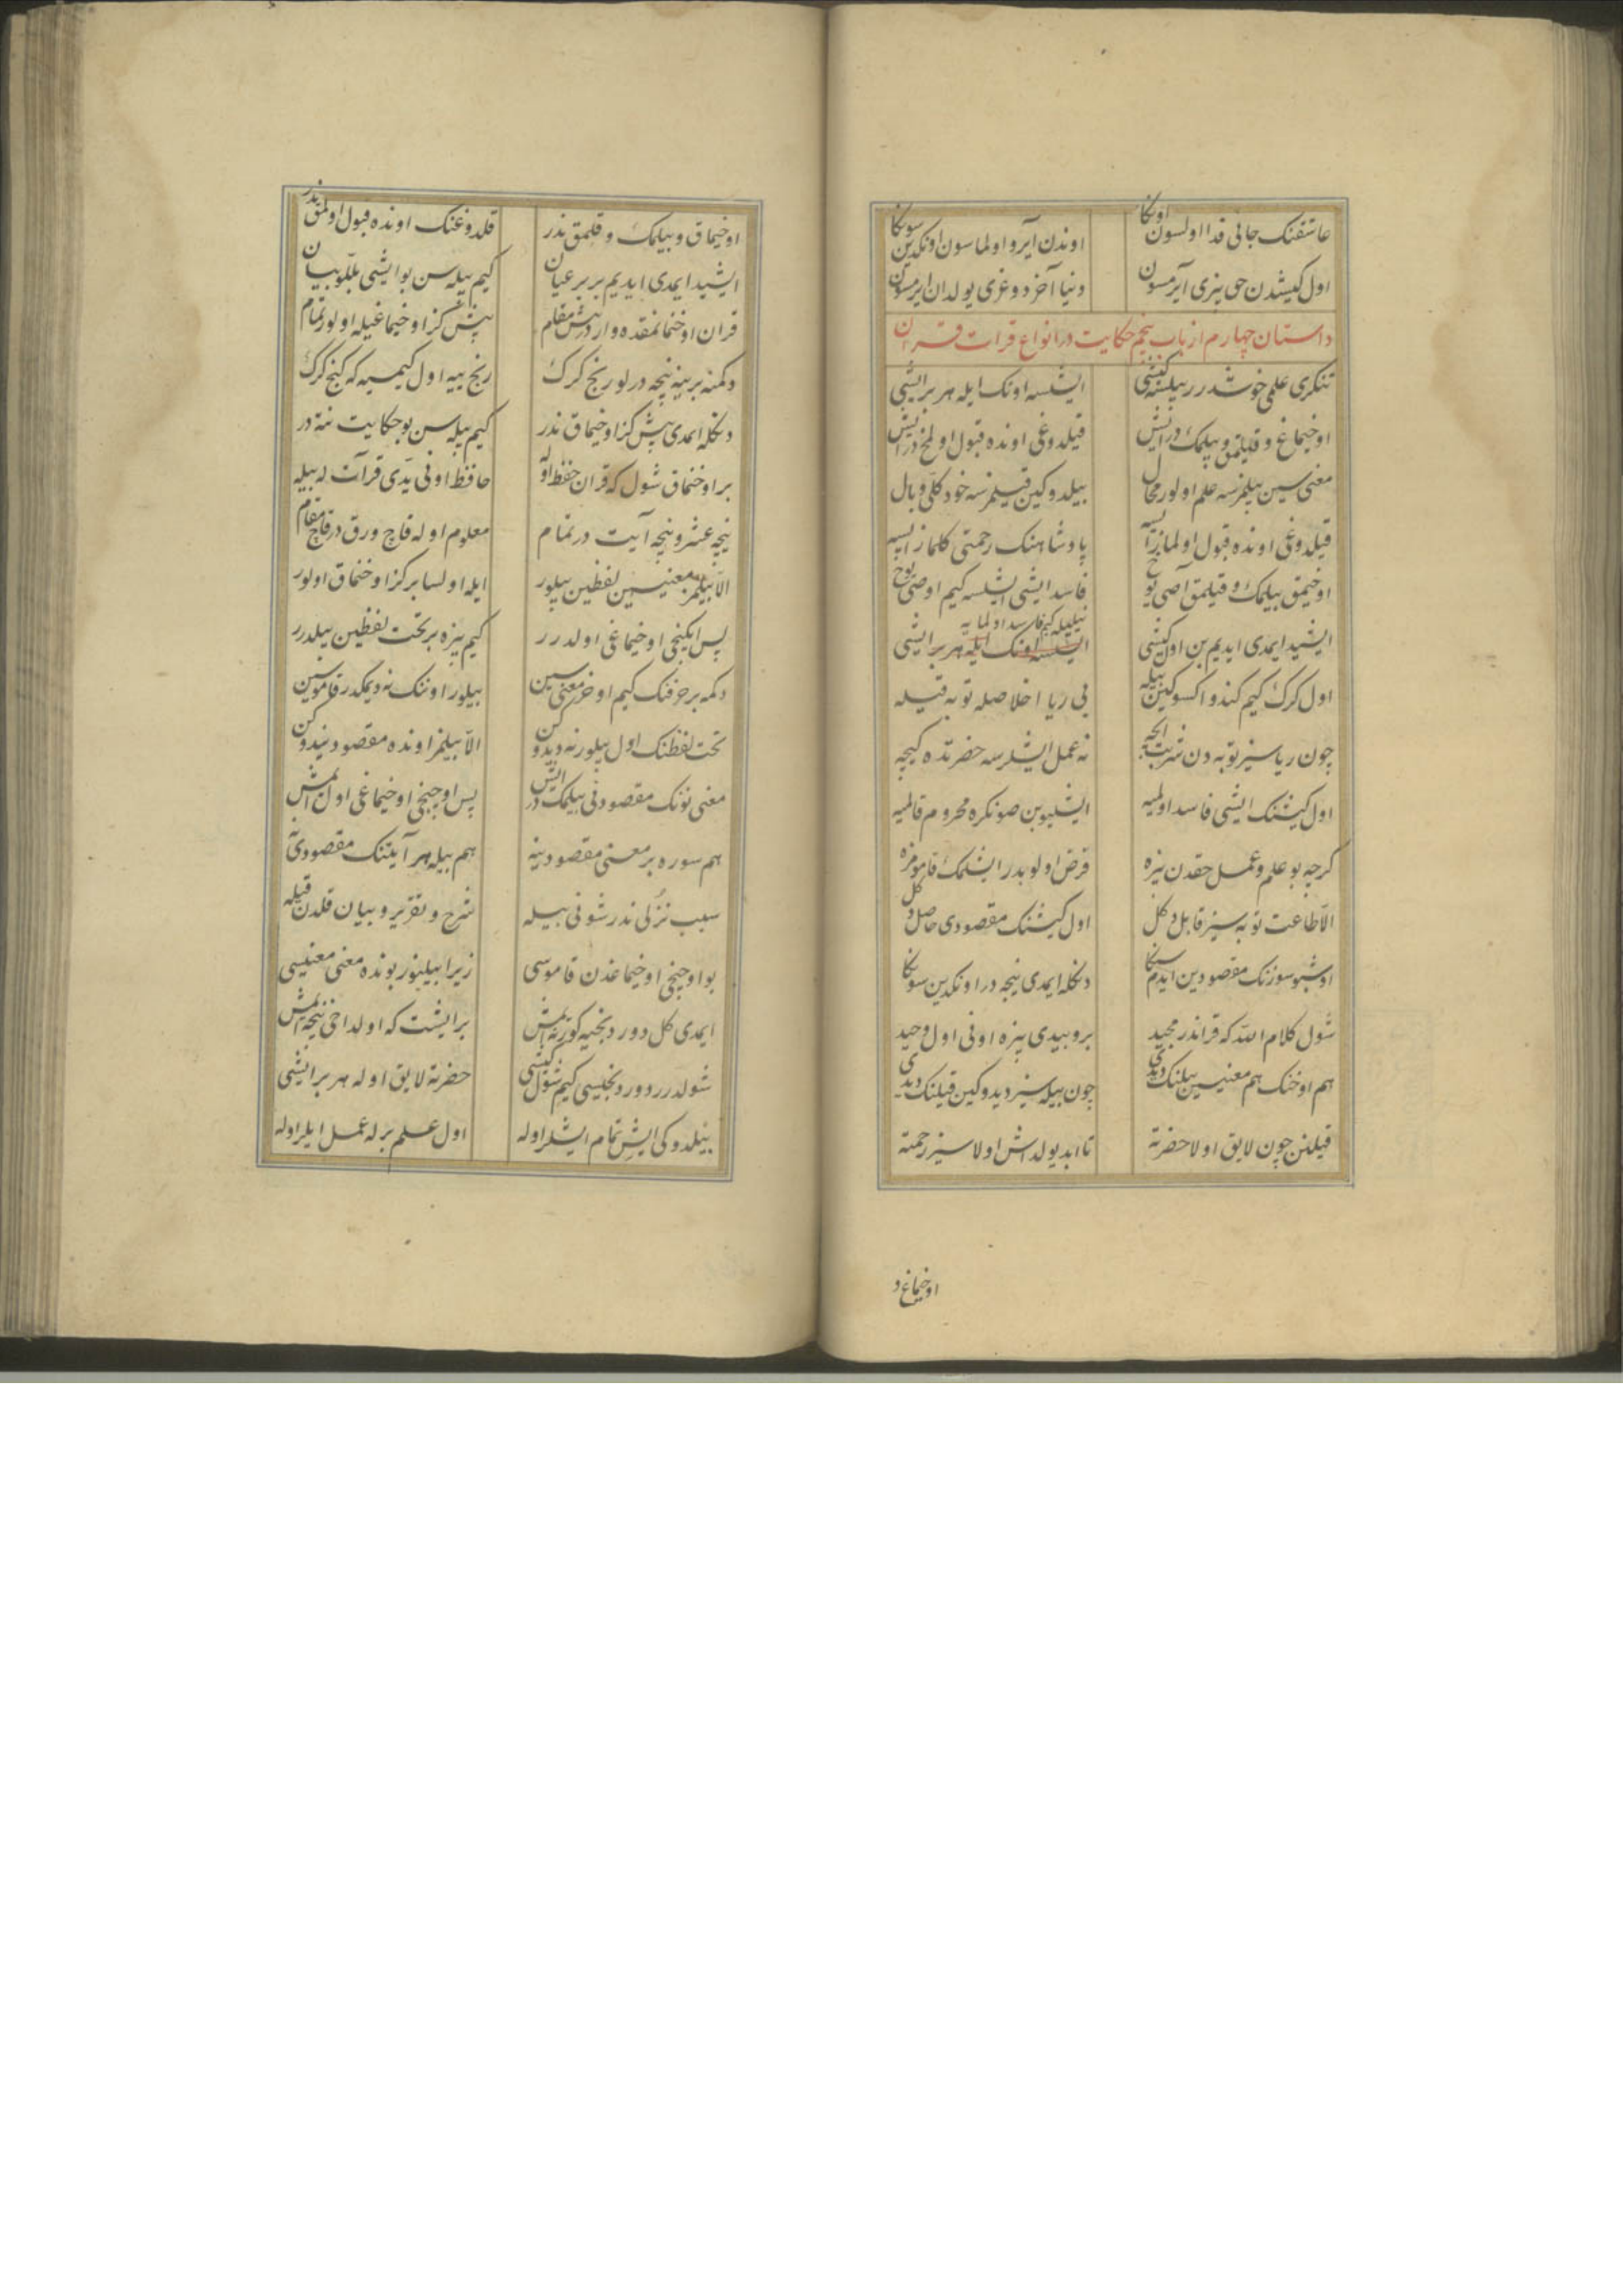 عاشقنک جانی فدا اولسون اونکا اوندن آیرو اولماسون اونکدین سونکا
اول کیشدن حق بیزی آیرمسون دنیا آخر دوغری یولدان ایرمسون
داستان چهارم از باب پنجم حکایت در انواع قرات قران
تنکری علمی خوشدرر بیلسه کیشی ایشلسه اونک ایله هر بر ایشی
اوخیماغ و قیلمق و بیلمک در ایش قیلدوغی اونده قبول اولمخ در ایش
معنی سین بیلمزسه علم اولور محال بیلدوکین قیلمزسه خود کلی وبال
قیلدوغی اونده قبول اولمازایسه پادشاهنک رحمتی کلمازایسه
اوخیمق بیلمک و قیلمق آصی یوخ فاسد ایشی ایشلسه کیم اوصی یوخ
ایشید ایمدی ایدیم بن اول کیشی ایشلسه اونک ایله هر بر ایشی
نیلیله کیم فاسد اولمایه
اول کرک کیم کندو اکسوکین بیله بی ریا اخلاصله توبه قیله
چون ریاسیز توبه دن شربت ایچه نه عمل ایشلرسه حضرتده کیچه
اول کیشنک ایشی فاسد اولمیه ایشلیوبن صونکره محروم قالمیه
کرچه بو علم و عمل حقدن بیزه فرض اولوبدر ایشلمک قاموموزه
الا طاعت توبه سیز قابل دکل اول کیشنک مقصودی حاصل دکل
اوشبو سوزنک مقصودین ایدم سکا دنکله ایمدی نیجه در اونکدین سونکا
شول کلام الله که قراندر مجید بروبیدی بیزه اونی اول وحید
هم اوخنک هم معنیسین بیلنک دیدی چون بیله سیز دیدوکین قیلنک دیدی
قیلنن چون لایق اولا حضرته تا ابد یولداش اولا سیز رحمته
اوخیماغ و
اوخیماق و بیلمک و قلمق نذر قلدوغنک اونده قبول اولمق نذر
ایشید ایمدی ایدیم بر بر عیان کیم بیله سن بو ایشی بللو بیان
قران اوخنمانقده واردر بیش مقام بیش کز اوخیماغیله اولور تمام
دکمنه برینه نیجه درلو رنج کرک رنج ییه اول کیمسه که کنج کرک
دنکله ایمدی بیش کز اوخیماق نذر کیم بیله سن بو حکایت نته در
بر اوخنماق شول که قران حفظ اوله حافظ اونی یدی قرآت له بیله
نیجه عشر و نیجه آیت در تمام معلوم اوله قاچ ورق در قاچ مقام
الا بیلمز معنیسین لفظین بیلور ایله اولسا بر کز اوخنماق اولور
پس ایکنجی اوخیماغی اولدرر کیم بیزه بر تحت لفظین بیلدرر
دکمه بر حرفنک کیم اوخر معنی سین بیلور اوننک نه دیمکدر قاموسین
تحت لفظنک اول بیلور نه دیدوکن الا بیلمز اونده مقصود نیدوکن
معنی نونک مقصودنی بیلمک در ایش پس اوچنجی اوخیماغی اول ایمش
هم سوره بر معنی مقصودینه هم بیله هر آیتنک مقصودی
سبب نزلی ندر شونی بیله شرح و تقریر و بیان قلدن قیله
بو اوچنجی اوخیماغدن قاموسی زیرا بیلینور بونده معنی معنیسی
ایمدی کل دوردنجیه کورنه ایمش بر ایشت که اولداخی نیجه ایمش
شولدرر دوردنجیسی کیم شول کیشی حضرته لایق اوله هر بر ایشی
بیلدوکی ایش تمام ایشلر اوله اول علم برله عمل ایلر اوله